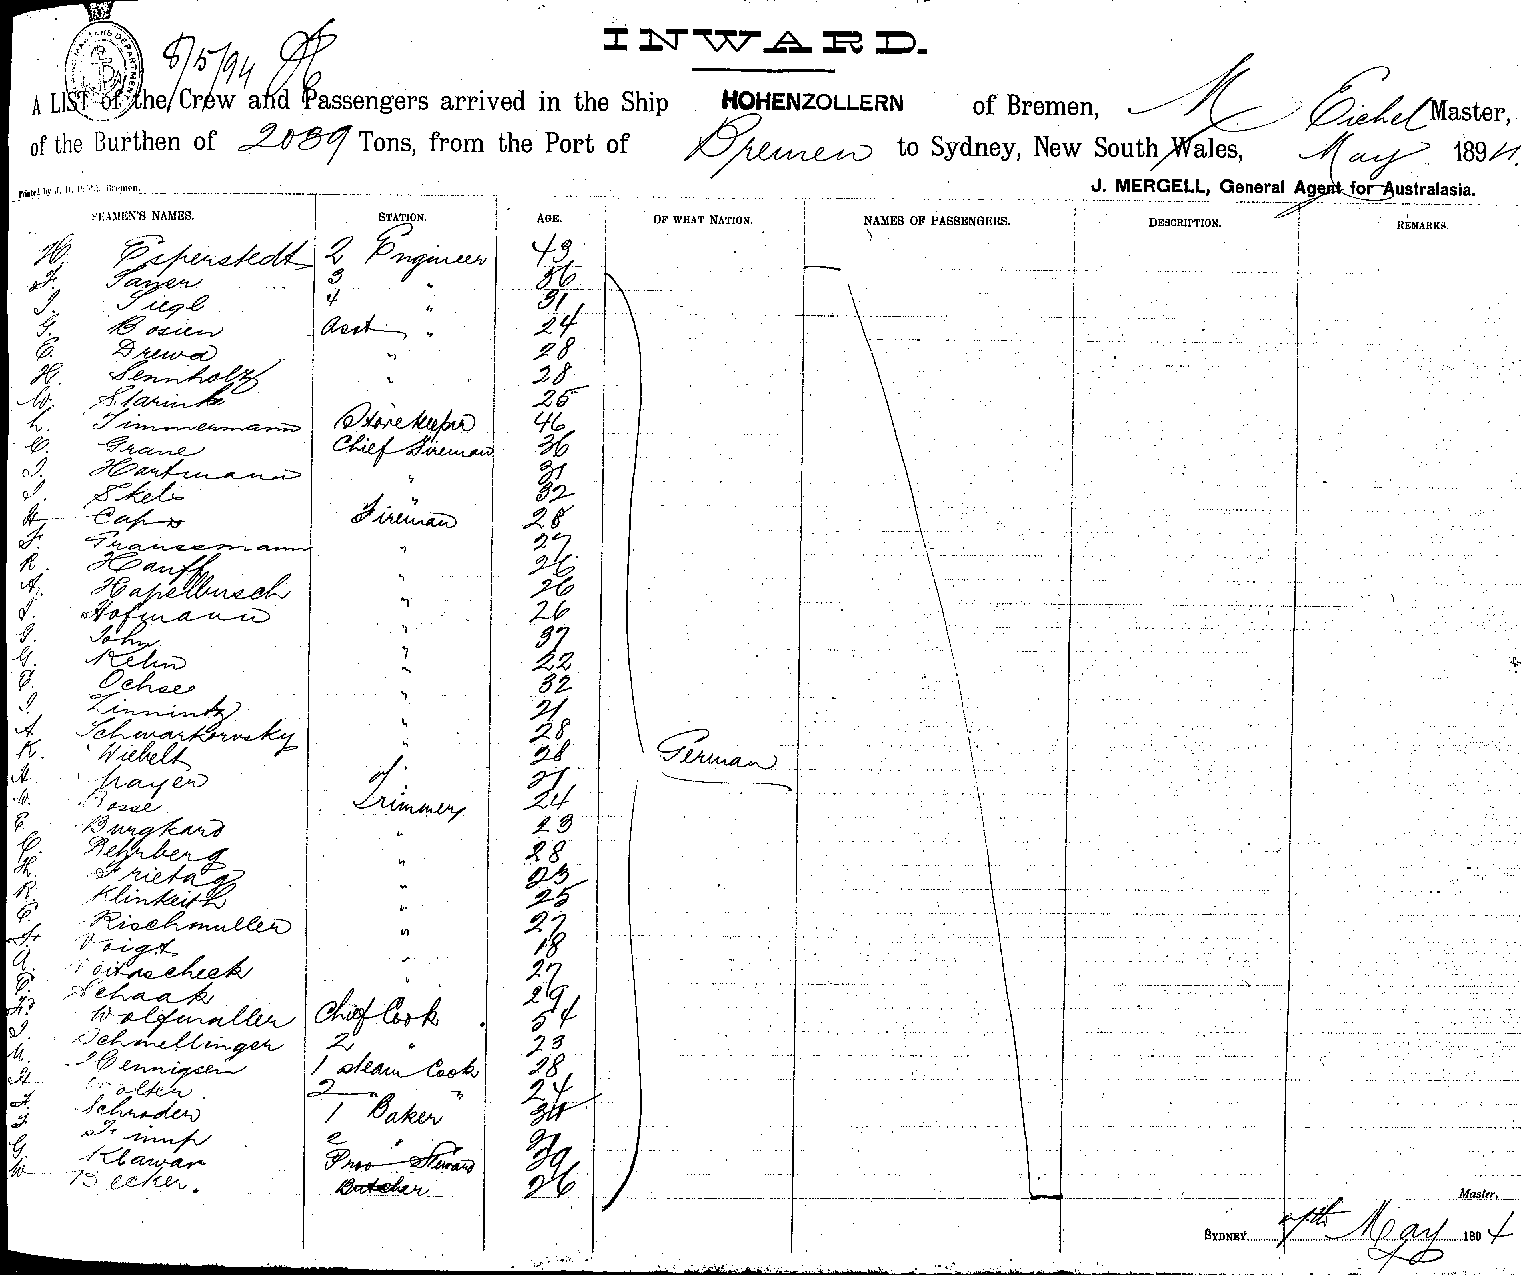 8/5/94
INWARD.
A LIST of the Crew and Passengers arrived in the Ship HOHENZOLLERN of Bremen, M Eichel Master,
of the Burthen of 2039 Tons, from the Port of Bremen to Sydney, New South Wales, May 1894.
J. MERGELL, General Agent for Australasia.
SEAMEN'S NAMES. STATION. AGE. OF WHAT NATION. NAMES OF PASSENGERS. DESCRIPTION. REMARKS.
H. Esperstedt 2 Engineer 43
F. Sauer 3 " 36
J. Siegl 4 " 31
G. Bosien Asst " 24
C. Drewa " 28
H. Sennholz " 28
W. Starink 25
L. Timmermann Storekeeper 46
C. Grane Chief Fireman 36
J. Hartmann " 31
J. Skels " 32
H Caps Fireman 28
F. Traussmann " 27
R. Hauff " 26
A. Hapelbusch " 26
J. Hofmann " 26
J. John " 37
G. Kehn " 22
E. Ochse " 32
J. Zinnintz " 21
A. Schwarkorvsky " 28
K. Wiebelt " 28
A. Mayer " 21
Posse Trimmer 24
E. Burgkard " 23
C. Rehrberg " 28
H. Frietag " 23
R. Klinkeith " 25
C. Rischmuller " 27
F. Voigt " 18
Woitascheck " 27
C. Schaak 29
Wolfmuller Chief Cook 54
J. Schmellinger 2 " 23
Hennigsen 1 steam Cook 28
Wolter 2 " " 24
Schroder 1 Baker 34
F. Timp 2 " 21
G. Klawan Prov Steward 39
W Becker. Butcher 26
German
Master.
SYDNEY 7th May 1894